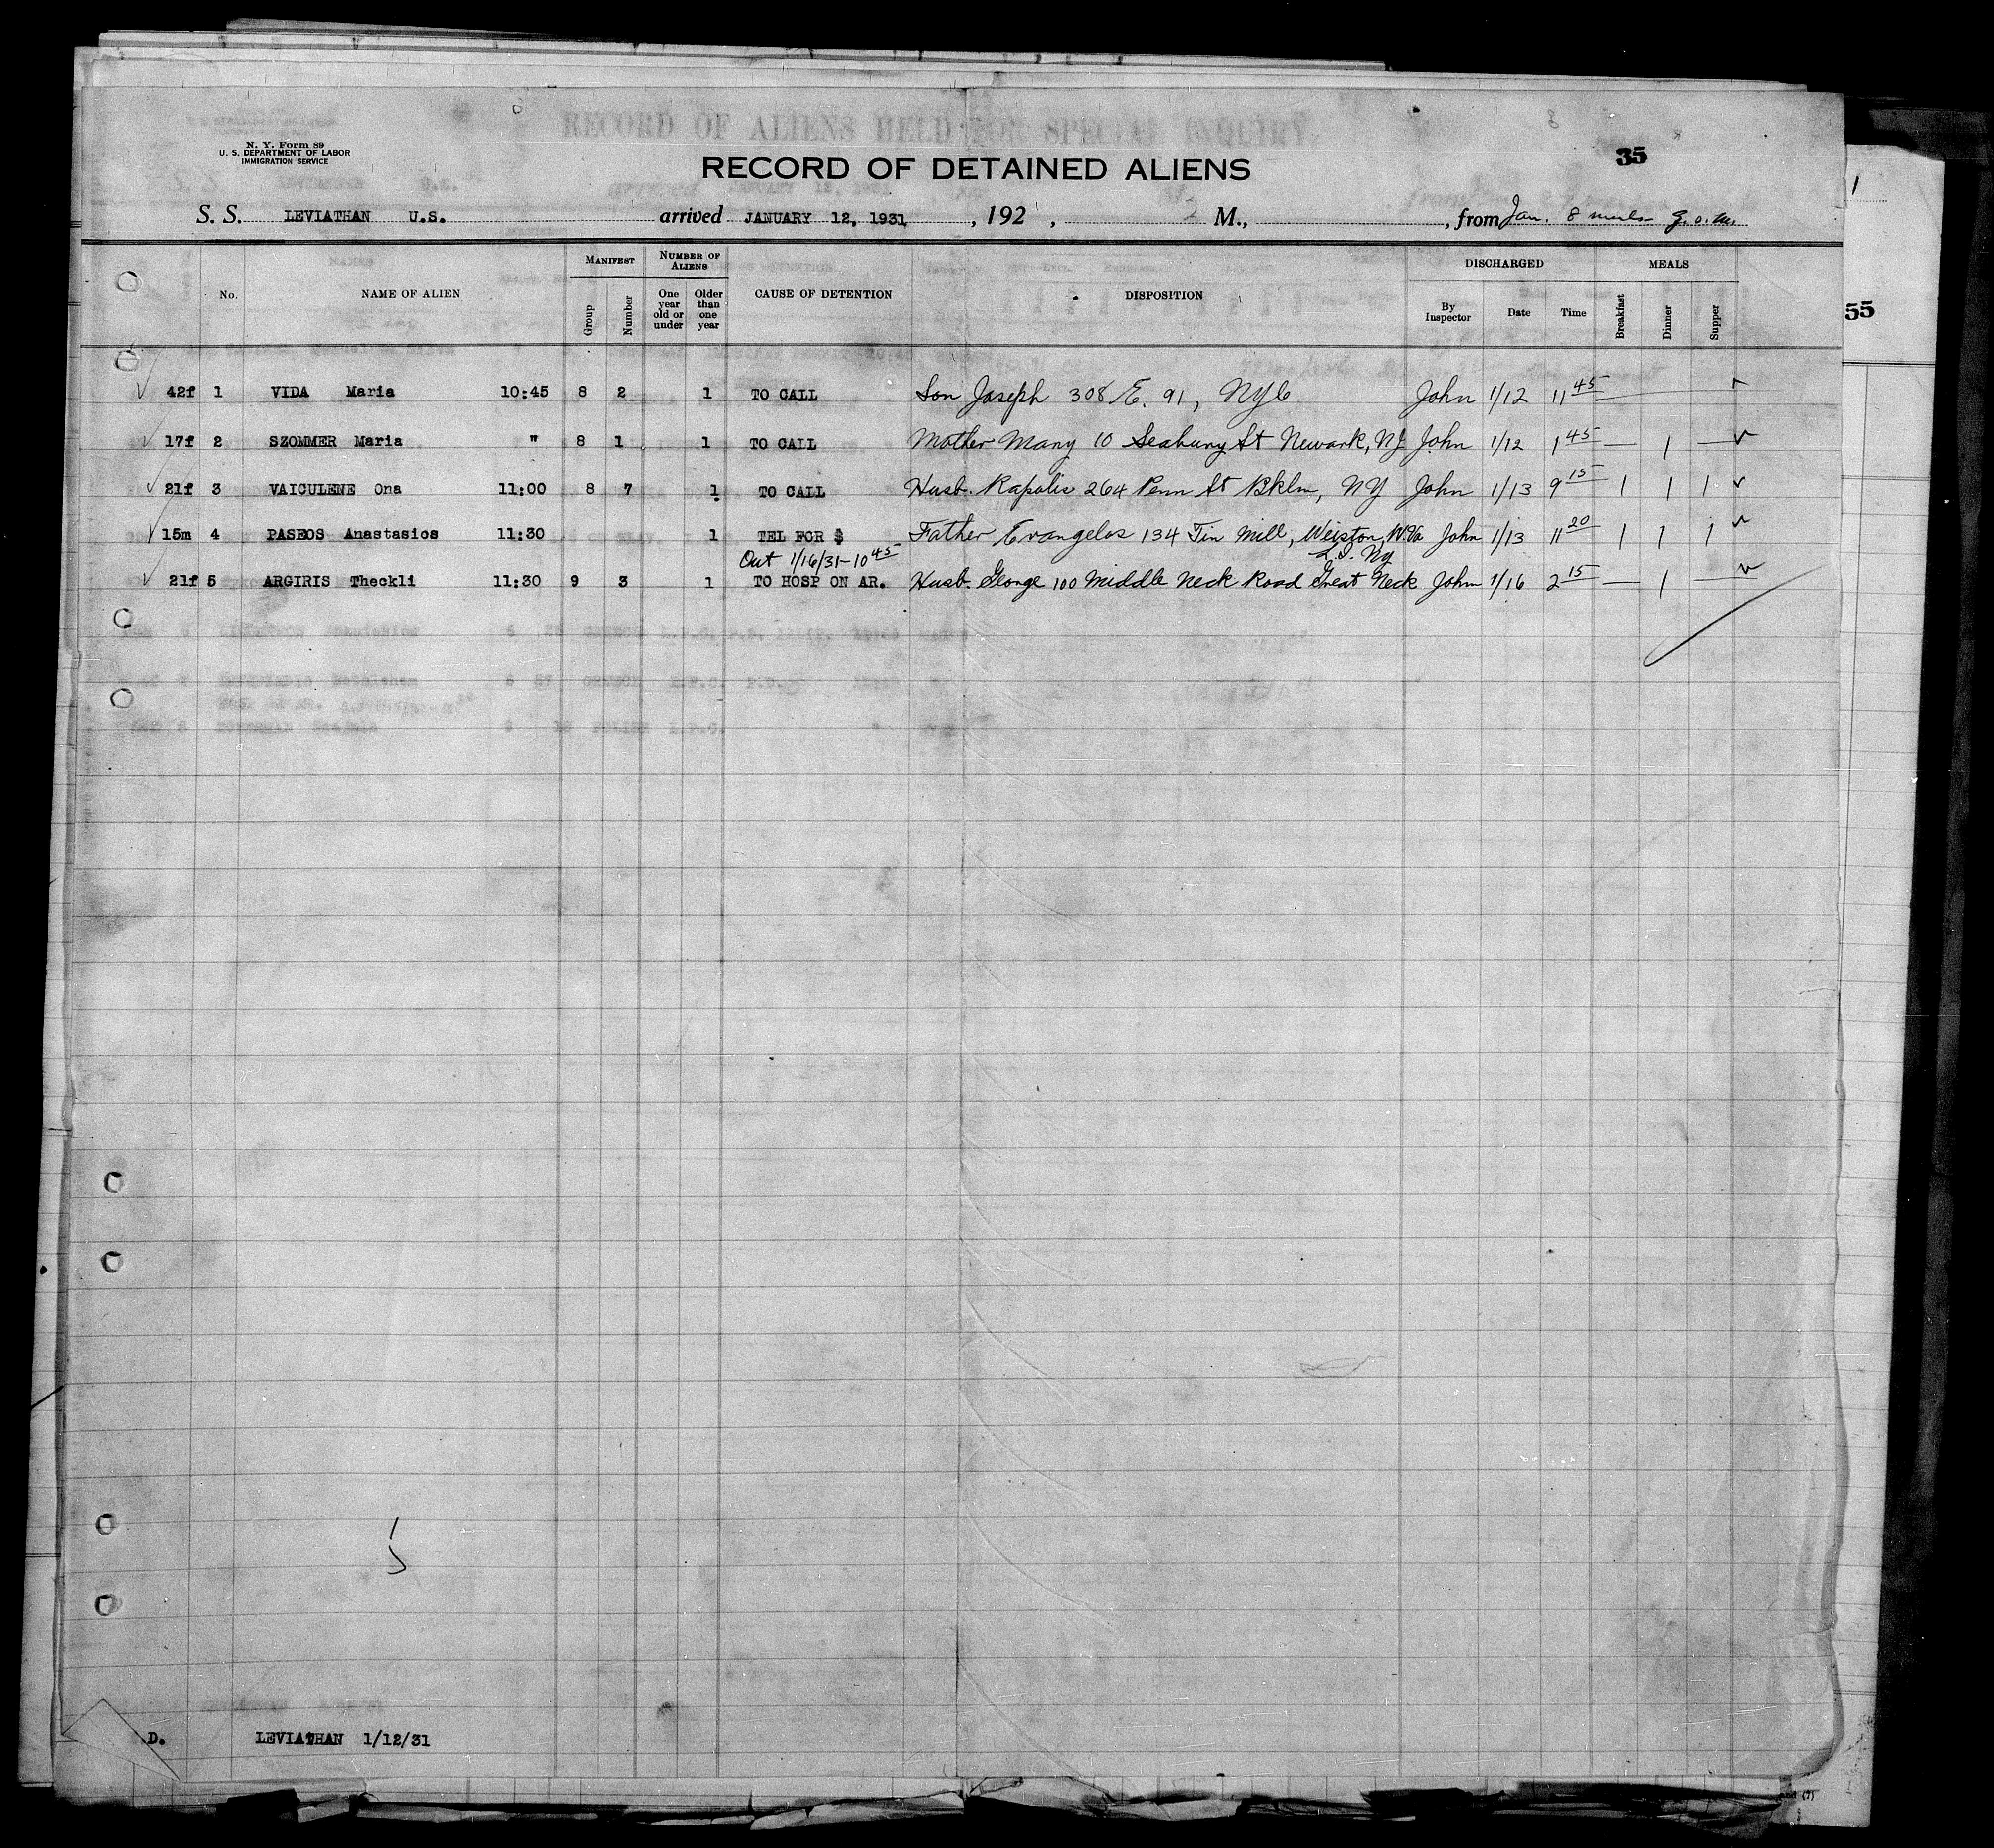 N. Y. Form 89
U. S. DEPARTMENT OF LABOR
IMMIGRATION SERVICE
RECORD OF ALIENS HELD FOR SPECIAL INQUIRY
RECORD OF DETAINED ALIENS
35
S. S. LEVIATHAN U.S. arrived JANUARY 12, 1931, 192 , M., , from Jan. 8 meals
No. NAME OF ALIEN MANIFEST Group Number NUMBER OF ALIENS One year old or under Older than one year CAUSE OF DETENTION DISPOSITION DISCHARGED By Inspector Date Time MEALS Breakfast Dinner Supper
55
42f 1 VIDA Maria 10:45 8 2 1 TO CALL Son Joseph 308 E. 91, NYC John 1/12 11 45
17f 2 SZOMMER Maria " 8 1 1 TO CALL Mother Mary 10 Seabury St Newark, NJ John 1/12 1 45 — 1 —
21f 3 VAICULENE Ona 11:00 8 7 1 TO CALL Husb. Rapolis 264 Penn St Bklm, NY John 1/13 9 15 1 1 1
15m 4 PASEOS Anastasios 11:30 1 TEL FOR $ Father Evangelos 134 Tin Mill, Weiston, W.Va John 1/13 11 20 1 1 1
Out 1/16/31-10 45 L.I. Ny
21f 5 ARGIRIS Theckli 11:30 9 3 1 TO HOSP ON AR. Husb. George 100 Middle Neck Road Great Neck John 1/16 2 15 — 1 —
5
D. LEVIATHAN 1/12/31
and (7)